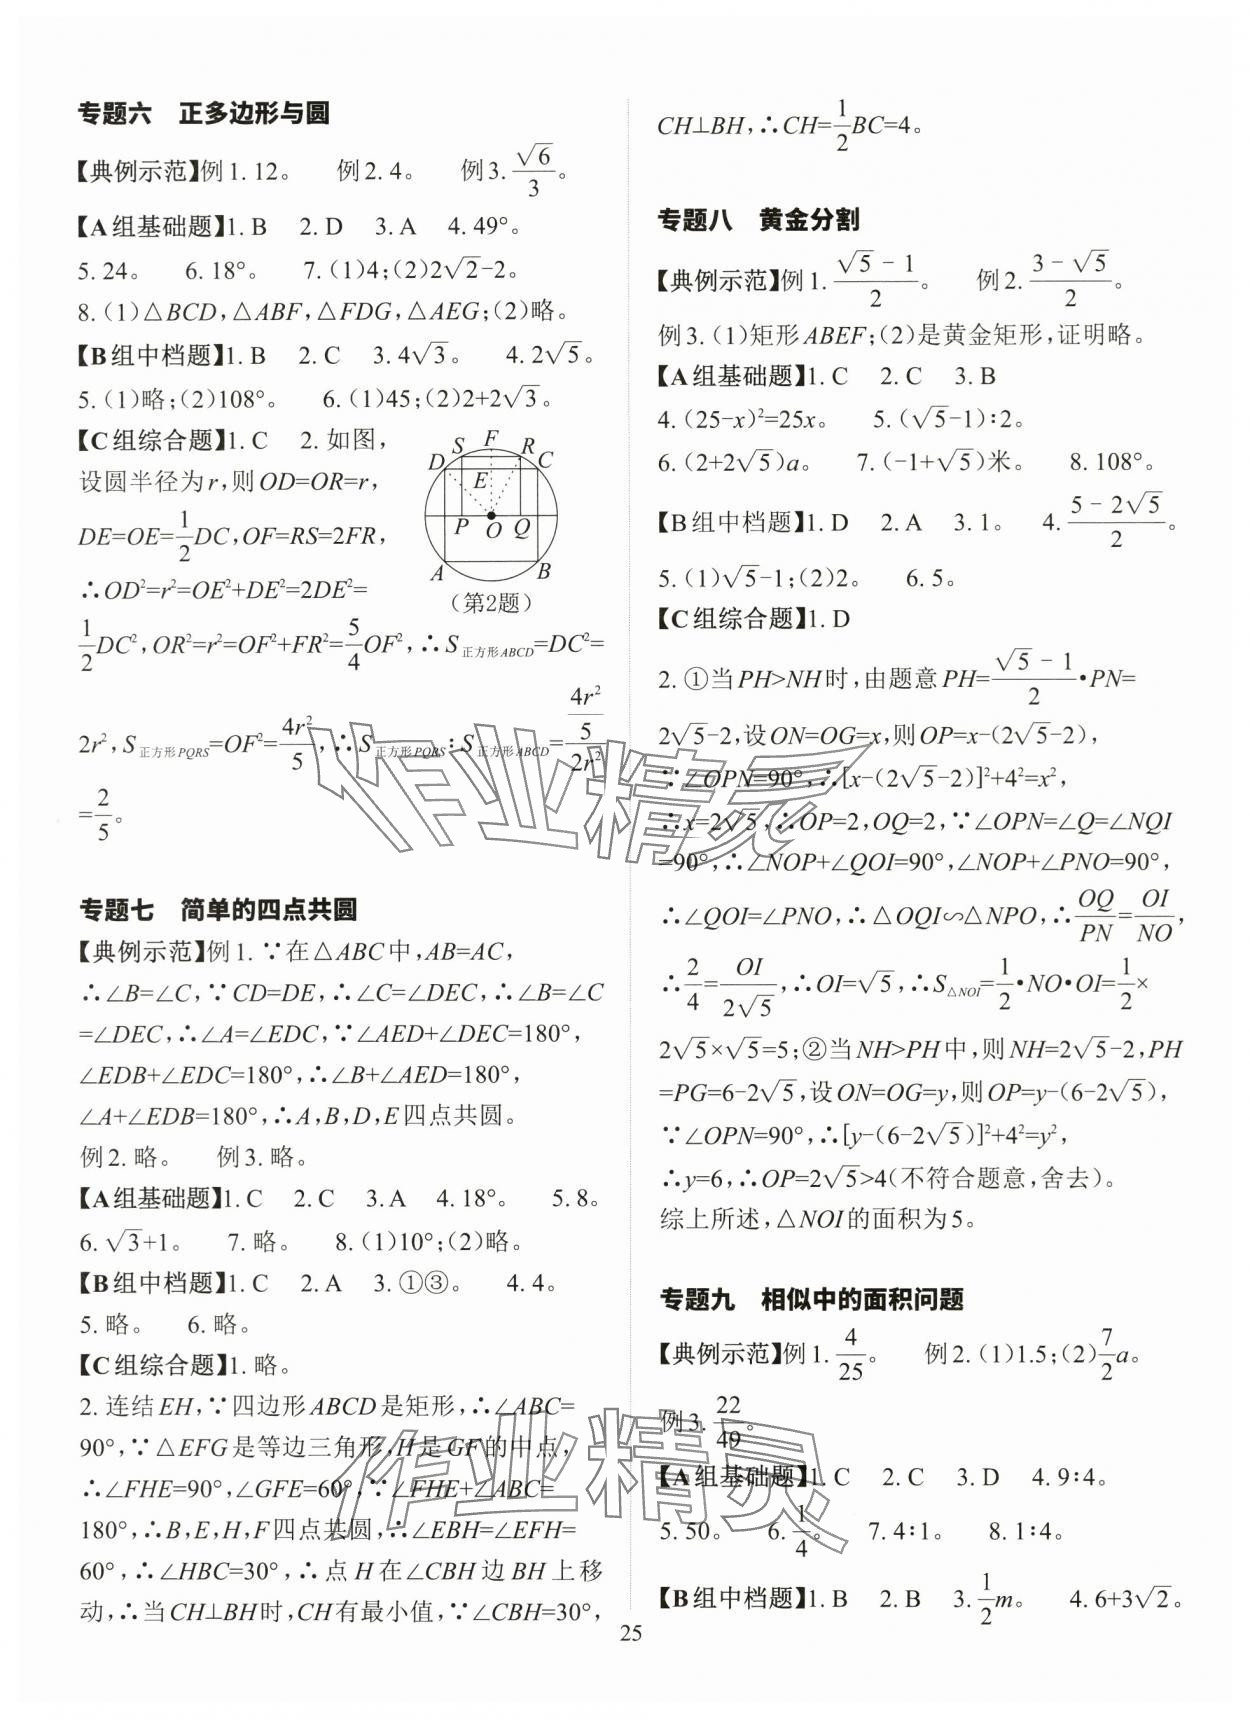 专题六　正多边形与圆
【典例示范】例1.12。　例2.4。　例3.√6/3。
【A组基础题】1.B　2.D　3.A　4.49°。
5.24。　6.18°。　7.(1)4;(2)2√2-2。
8.(1)△BCD,△ABF,△FDG,△AEG;(2)略。
【B组中档题】1.B　2.C　3.4√3。　4.2√5。
5.(1)略;(2)108°。　6.(1)45;(2)2+2√3。
【C组综合题】1.C　2.如图,
设圆半径为r,则OD=OR=r,
DE=OE=1/2DC,OF=RS=2FR,
∴OD²=r²=OE²+DE²=2DE²=
S F R
D C
E
P O Q
A B
(第2题)
1/2DC²,OR²=r²=OF²+FR²=5/4OF²,∴S正方形ABCD=DC²=
2r²,S正方形PQRS=OF²=4r²/5,∴S正方形PQRS:S正方形ABCD=(4r²/5)/(2r²)
=2/5。
专题七　简单的四点共圆
【典例示范】例1.∵在△ABC中,AB=AC,
∴∠B=∠C,∵CD=DE,∴∠C=∠DEC,∴∠B=∠C
=∠DEC,∴∠A=∠EDC,∵∠AED+∠DEC=180°,
∠EDB+∠EDC=180°,∴∠B+∠AED=180°,
∠A+∠EDB=180°,∴A,B,D,E四点共圆。
例2.略。　例3.略。
【A组基础题】1.C　2.C　3.A　4.18°。　5.8。
6.√3+1。　7.略。　8.(1)10°;(2)略。
【B组中档题】1.C　2.A　3.①③。　4.4。
5.略。　6.略。
【C组综合题】1.略。
2.连结EH,∵四边形ABCD是矩形,∴∠ABC=
90°,∵△EFG是等边三角形,H是GF的中点,
∴∠FHE=90°,∠GFE=60°,∵∠FHE+∠ABC=
180°,∴B,E,H,F四点共圆,∴∠EBH=∠EFH=
60°,∴∠HBC=30°,∴点H在∠CBH边BH上移
动,∴当CH⊥BH时,CH有最小值,∵∠CBH=30°,
CH⊥BH,∴CH=1/2BC=4。
专题八　黄金分割
【典例示范】例1.(√5-1)/2。　例2.(3-√5)/2。
例3.(1)矩形ABEF;(2)是黄金矩形,证明略。
【A组基础题】1.C　2.C　3.B
4.(25-x)²=25x。　5.(√5-1):2。
6.(2+2√5)a。　7.(-1+√5)米。　8.108°。
【B组中档题】1.D　2.A　3.1。　4.(5-2√5)/2。
5.(1)√5-1;(2)2。　6.5。
【C组综合题】1.D
2.①当PH>NH时,由题意PH=(√5-1)/2•PN=
2√5-2,设ON=OG=x,则OP=x-(2√5-2),
∵∠OPN=90°,∴[x-(2√5-2)]²+4²=x²,
∴x=2√5,∴OP=2,OQ=2,∵∠OPN=∠Q=∠NQI
=90°,∴∠NOP+∠QOI=90°,∠NOP+∠PNO=90°,
∴∠QOI=∠PNO,∴△OQI∽△NPO,∴OQ/PN=OI/NO,
∴2/4=OI/2√5,∴OI=√5,∴S△NOI=1/2•NO•OI=1/2×
2√5×√5=5;②当NH>PH中,则NH=2√5-2,PH
=PG=6-2√5,设ON=OG=y,则OP=y-(6-2√5),
∵∠OPN=90°,∴[y-(6-2√5)]²+4²=y²,
∴y=6,∴OP=2√5>4(不符合题意,舍去)。
综上所述,△NOI的面积为5。
专题九　相似中的面积问题
【典例示范】例1.4/25。　例2.(1)1.5;(2)7/2a。
例3.22/49。
【A组基础题】1.C　2.C　3.D　4.9:4。
5.50。　6.1/4。　7.4:1。　8.1:4。
【B组中档题】1.B　2.B　3.1/2m。　4.6+3√2。
25
作业精灵
作业精灵